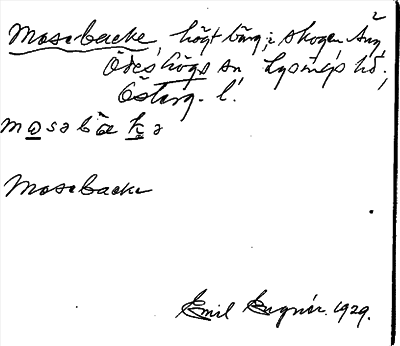 Mosebacke, högt bärg, i skogen å
Ödeshögs sn Lysings hd;
Österg. l.
mosəbakə
Mosebacke
Emil 1929.